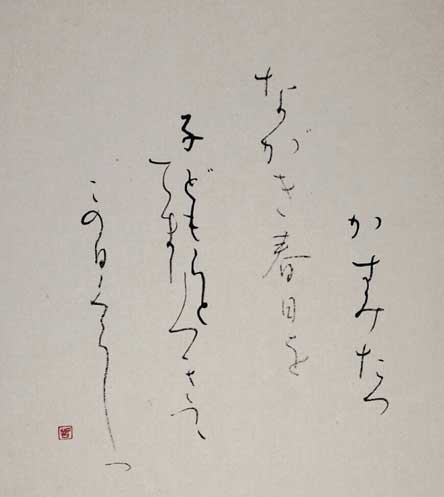 かすみたつ
ながき春日を
子どもらと
てまりつきつゝ
この日くらしつ